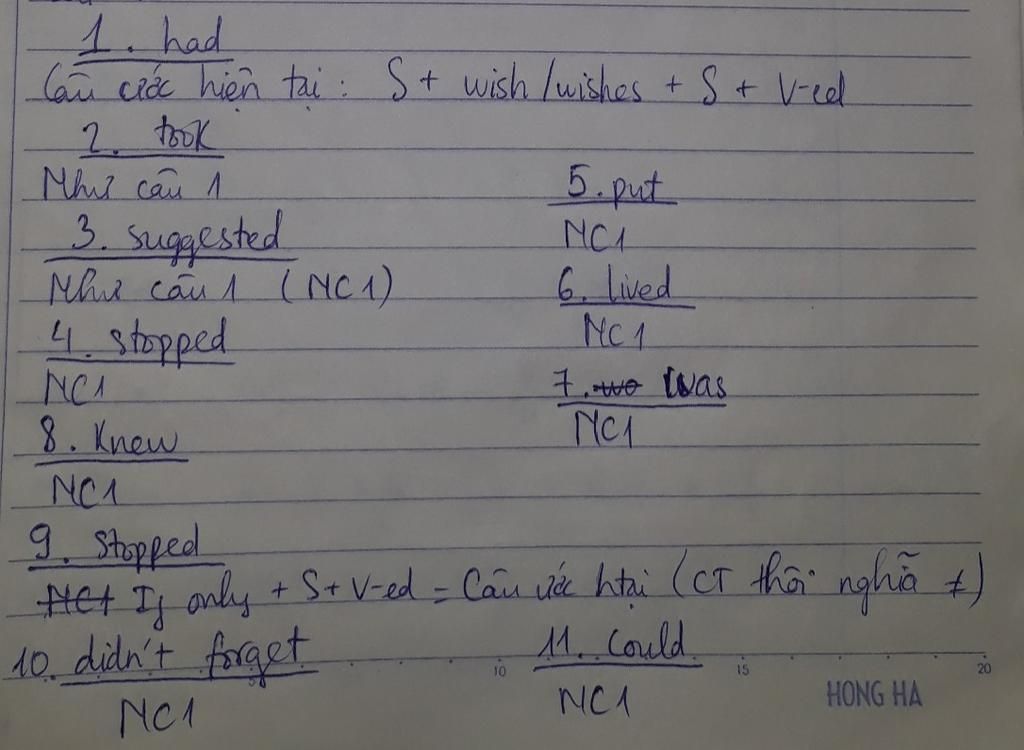 1. had
Câu ước hiện tại: S + wish/wishes + S + V-ed
2. took
Như câu 1
3. suggested
Như câu 1 (NC1)
4. stopped
NC1
5. put
NC1
6. lived
NC1
7. wo was
NC1
8. Knew
NC1
9. Stopped
NC1 If only + S + V-ed = Câu ước htại (CT thôi nghĩa ≠)
10. didn't forget
NC1
11. Could
NC1
5 10 15 20
HONG HA